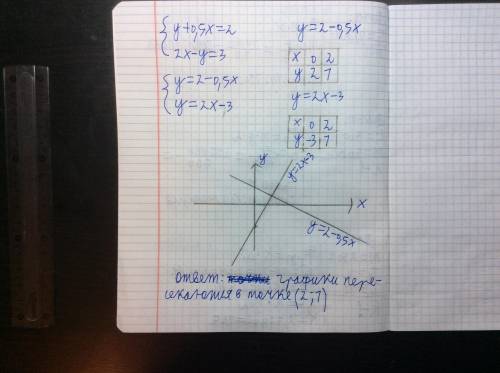 y+0,5x=2
2x-y=3
y=2-0,5x
y=2x-3
y=2-0,5x
x 0 2
y 2 1
y=2x-3
x 0 2
y -3 1
y
y=2x-3
x
y=2-0,5x
ответ: графики пере-
секаются в точке (2;1)